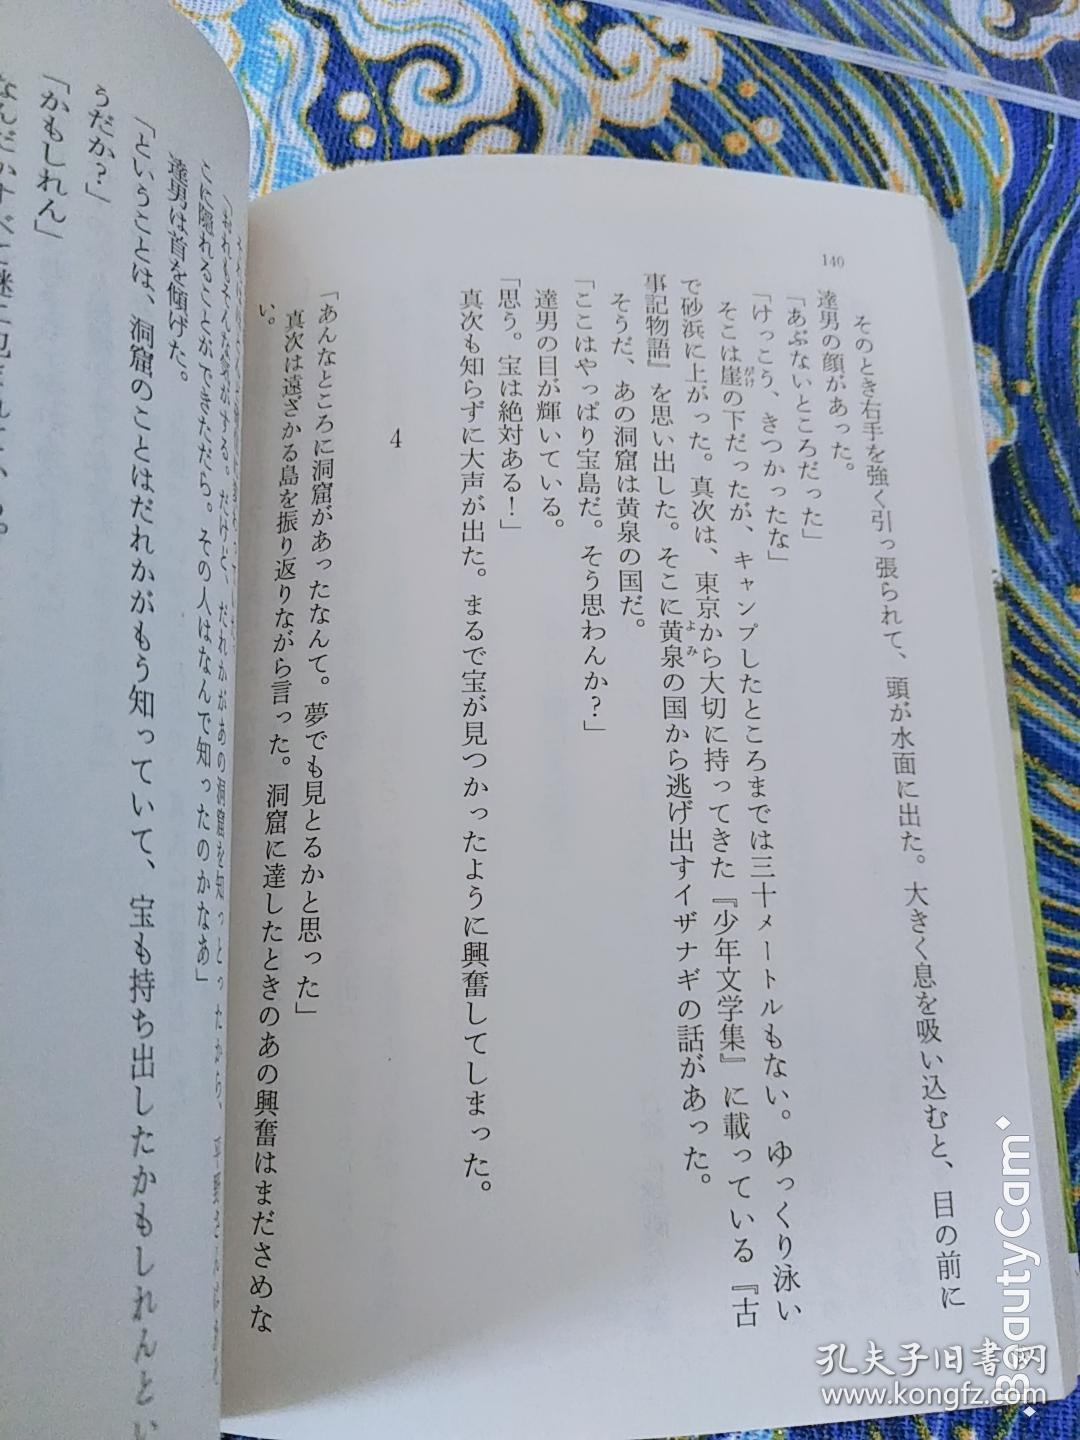 140
そのとき右手を強く引っ張られて、頭が水面に出た。大きく息を吸い込むと、目の前に
達男の顔があった。
「あぶないところだった」
「けっこう、きつかったな」
そこは崖の下だったが、キャンプしたところまでは三十メートルもない。ゆっくり泳い
がけ
で砂浜に上がった。真次は、東京から大切に持ってきた『少年文学集』に載っている『古
事記物語』を思い出した。そこに黄泉の国から逃げ出すイザナギの話があった。
よみ
そうだ、あの洞窟は黄泉の国だ。
「ここはやっぱり宝島だ。そう思わんか？」
達男の目が輝いている。
「思う。宝は絶対ある！」
真次も知らずに大声が出た。まるで宝が見つかったように興奮してしまった。
4
「あんなところに洞窟があったなんて。夢でも見とるかと思った」
真次は遠ざかる島を振り返りながら言った。洞窟に達したときのあの興奮はまださめな
い。
「おれもそんな気がする。だけど、だれかがあの洞窟を知っとったから、
こに隠れることができただら。その人はなんで知ったのかなあ」
達男は首を傾げた。
「ということは、洞窟のことはだれかがもう知っていて、宝も持ち出したかもしれんとい
うだか？」
「かもしれん」
BeautyCam
孔夫子旧书网
www.kongfz.com